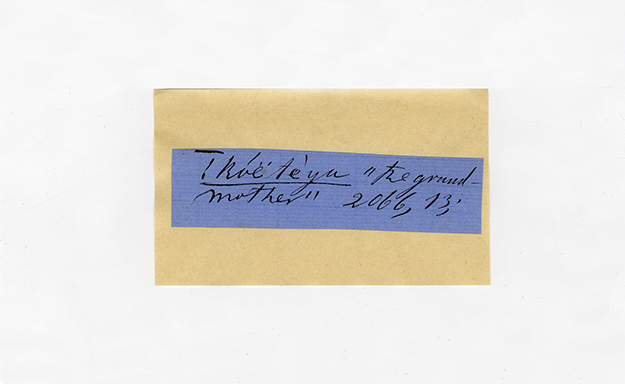 !kóë tẹ́yu "the grand-
mother" 2066, 13,